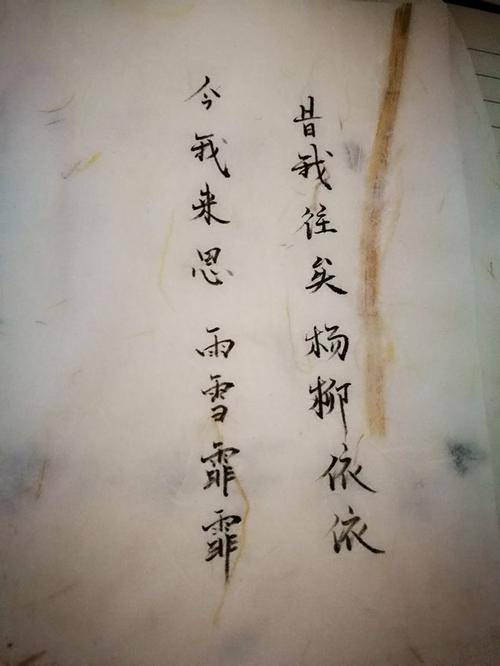 昔我往矣杨柳依依
今我来思雨雪霏霏